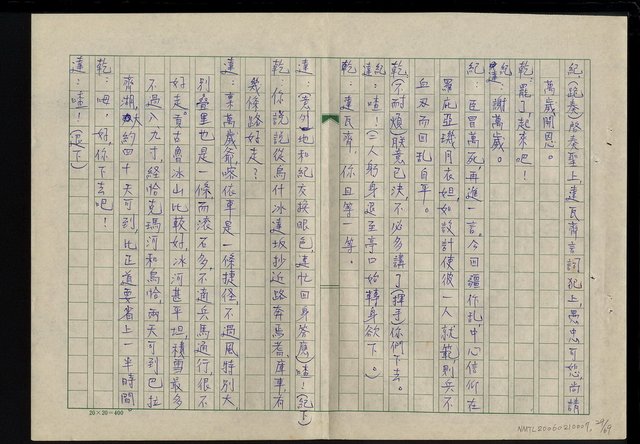 紀：(跪奏)啓奏聖上，達瓦齊言詞犯上，愚忠可恕，尚請
萬歲開恩。
乾：罷了，起來吧！
紀達：謝萬歲。
紀：臣冒萬死，再進一言。今回疆作乱，中心信仰在
羅庇亞璣月衣妲，如設計使彼一人就範，則兵不
血刃而回乱自平。
乾：(不耐煩)朕意已決，不必多講了(揮手)你們下去。
紀達：喳！(二人躬身退至亭口始轉身欲下。)
乾：達瓦齊，你且等一等。
達：(意外地和紀交換眼色，連忙回身答應)喳！(紀下)
乾：你說說從烏什冰達坂抄近路奔馬耆、庫車，有
幾條路好走？
達：東萬歲爺，喀依車是一條捷徑，不過風特別大
別疊里也是一條，而滾石多，不適兵馬通行，很不
好走。貢古魯冰山比較好，冰河甚平坦，積雪最多
不過八九寸，經恰克瑪河和烏恰，兩天可到巴拉
齊湖，大約四十天可到，比正道要省上一半時間。
乾：呣，好，你下去吧！
達：喳！(退下)
20×20=400
NMTL20060210009, 29/69